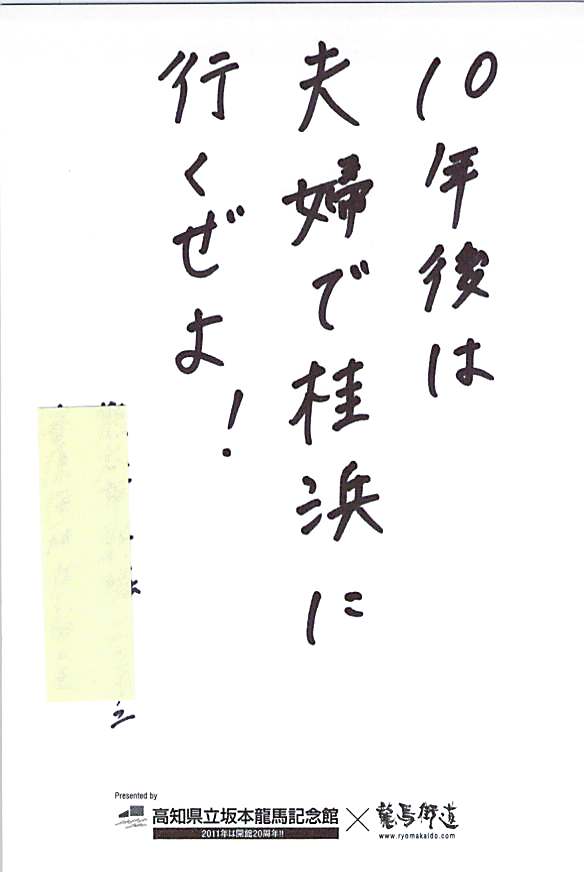 10年後は
夫婦で桂浜に
行くぜよ!
Presented by
高知県立坂本龍馬記念館
2011年は開館20周年!!
×
龍馬街道
www.ryomakaido.com